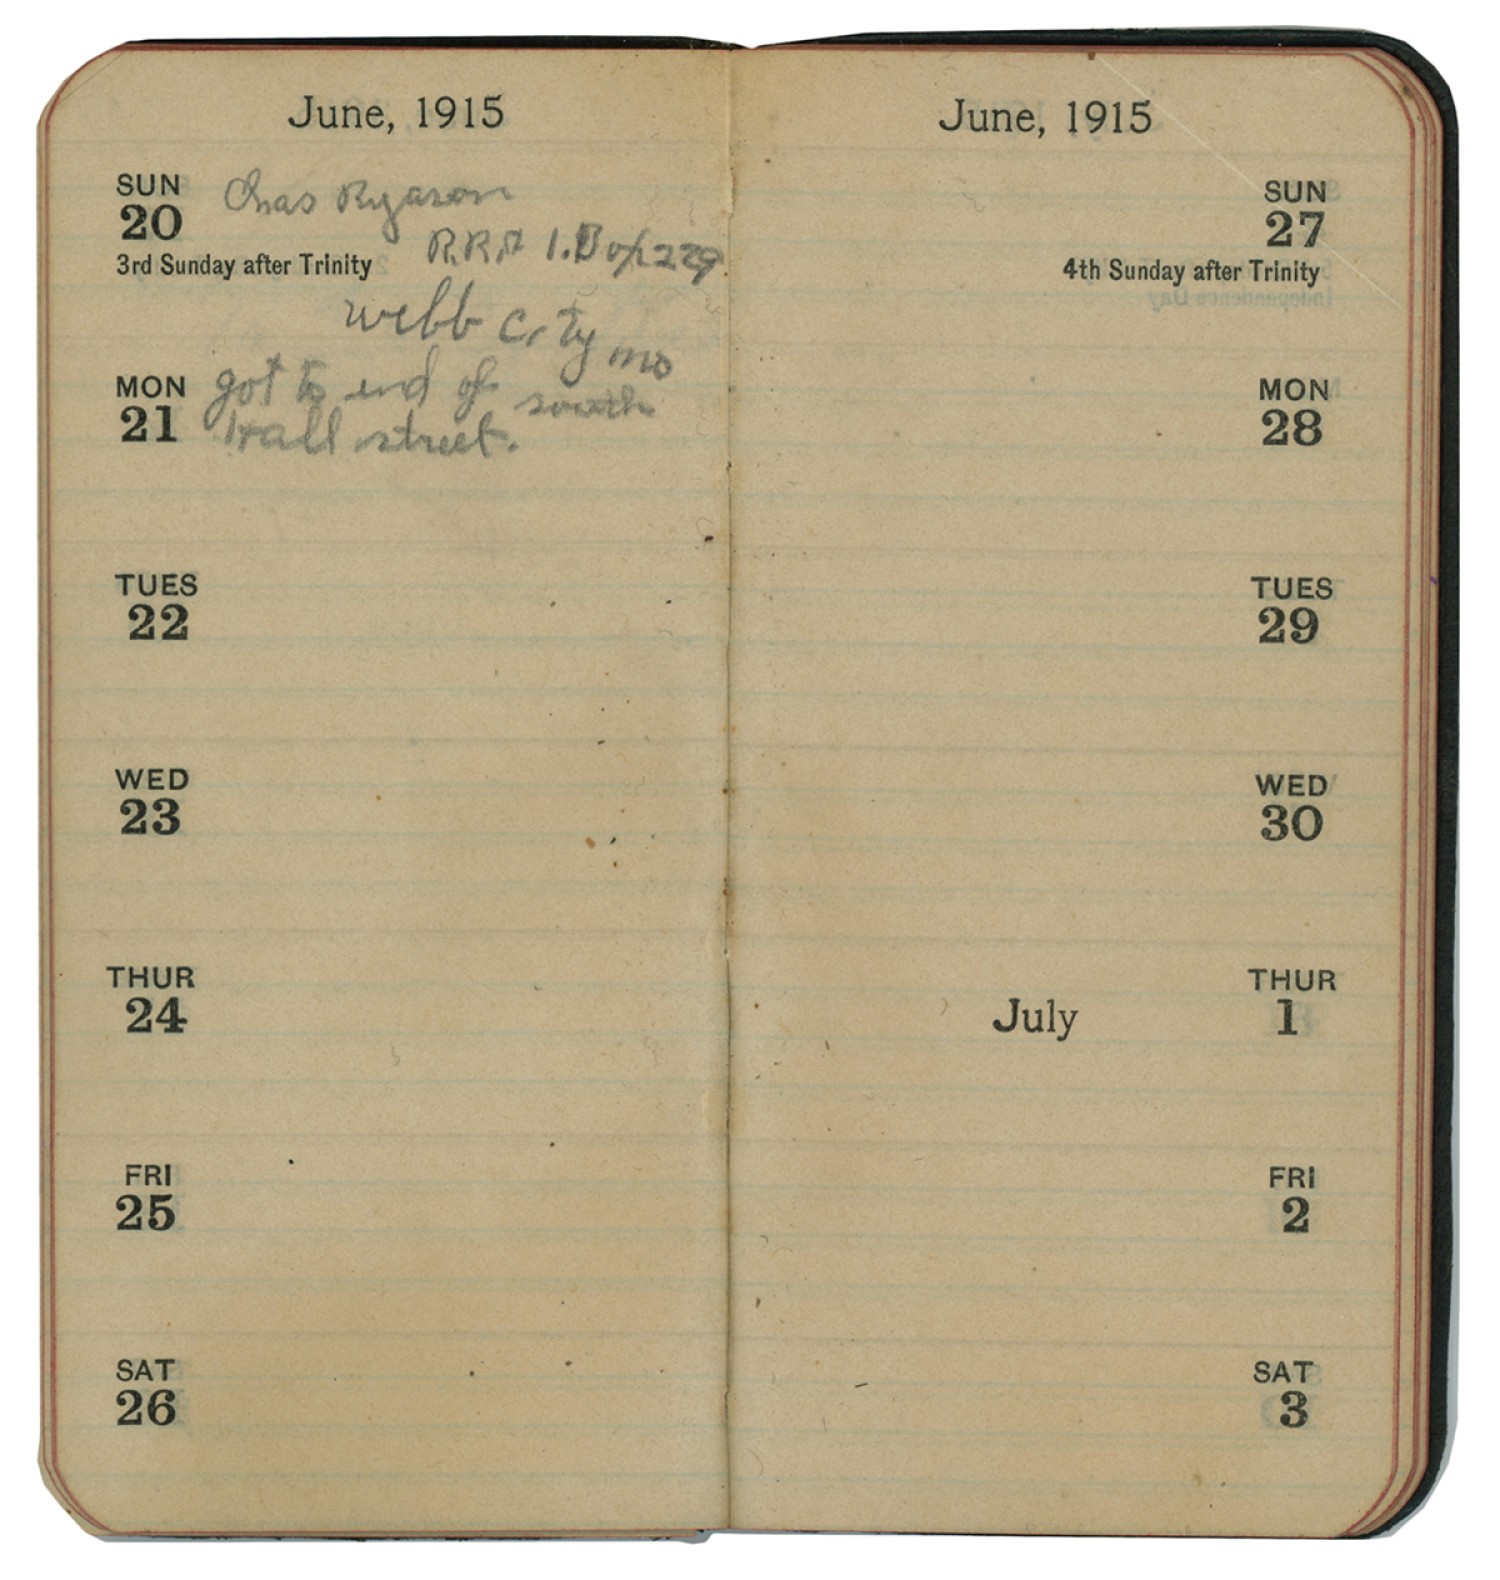 June, 1915
SUN
20
Chas Ryason
3rd Sunday after Trinity
R.R. 1. Box 229
Webb City mo
MON
21
got to end of south
wall street.
TUES
22
WED
23
THUR
24
FRI
25
SAT
26
June, 1915
SUN
27
4th Sunday after Trinity
MON
28
TUES
29
WED
30
July
THUR
1
FRI
2
SAT
3